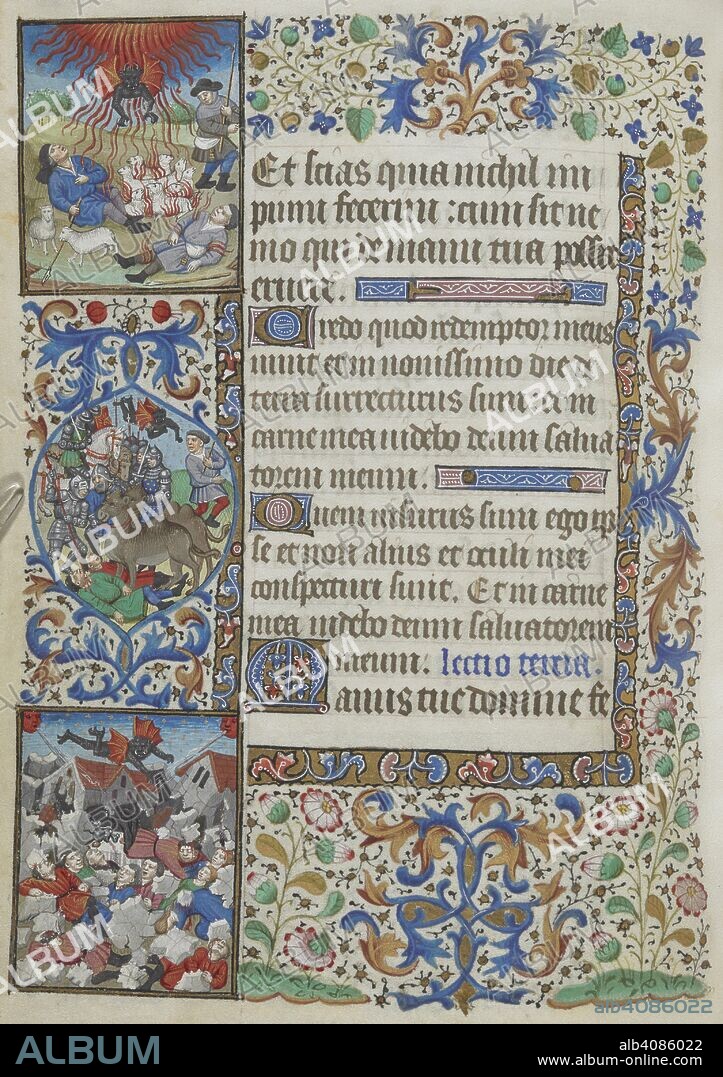 Et scias quia nichil im
pium fecerim : cum sit ne
mo qui de manu tua possit
eruere.
Credo quod redemptor meus
uiuit et in nouissimo die de
terra surrecturus sum et in
carne mea uidebo deum salua
torem meum.
Quem uisurus sum ego ip
se et non alius et oculi mei
conspecturi sunt. Et in carne
mea uidebo deum saluatorem
meum. lectio tertia.
Manus tue domine fe
ALBUM
alb4086022
ALBUM
alb4086022
www.album-online.com